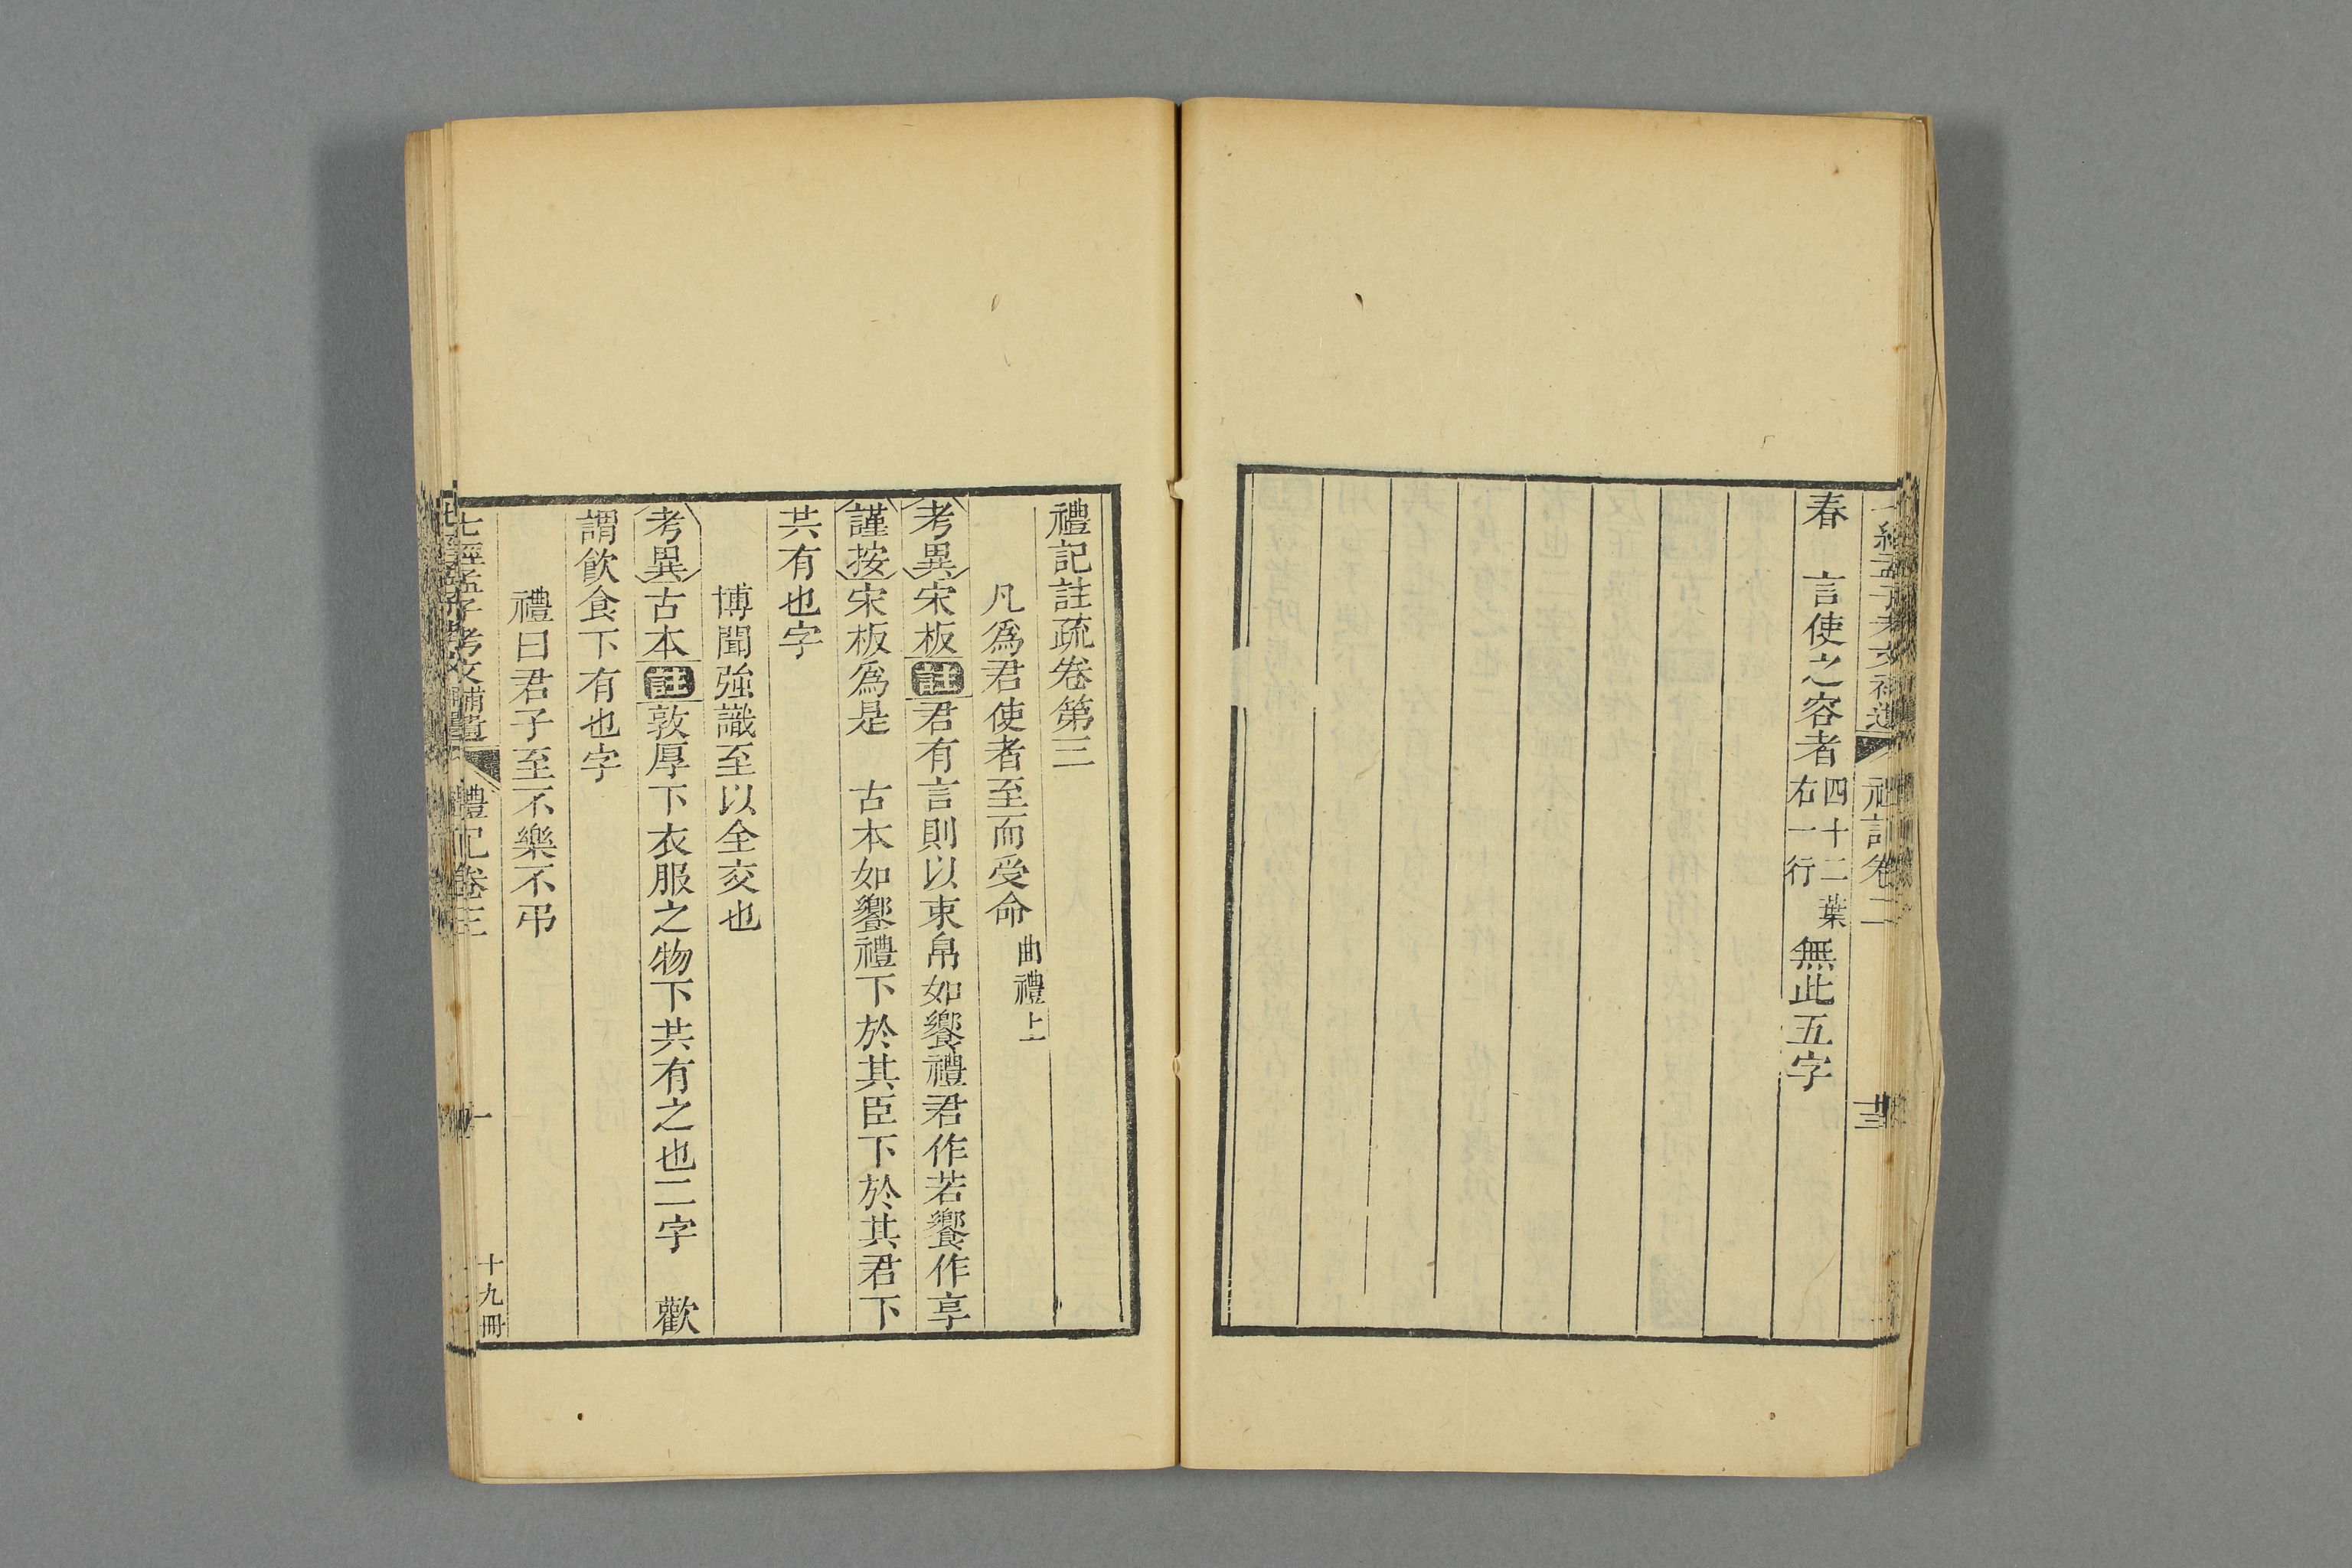 禮記卷二
春　言使之容者四十二葉右一行無此五字
禮記註疏卷第三
凡爲君使者至而受命曲禮上
考異宋板註君有言則以束帛如饗禮君作若饗作享
謹按宋板爲是　古本如饗禮下於其臣下於其君下
共有也字
博聞強識至以全交也
考異古本註敦厚下衣服之物下共有之也二字　歡
謂飮食下有也字
禮曰君子至不樂不弔
七經孟子考文補遺　禮記卷三　一　十九冊